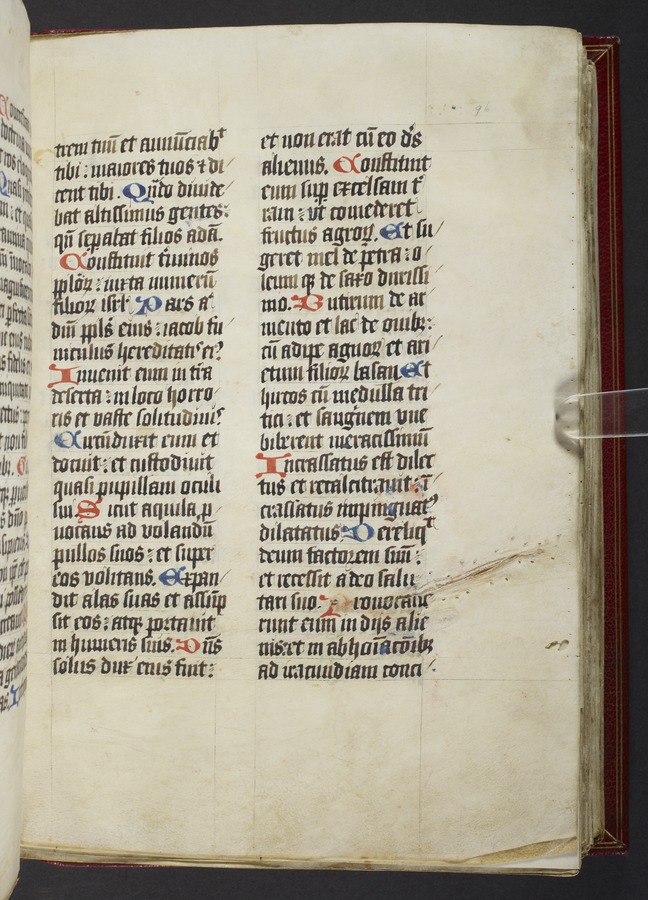 trem tuū et annūciabᵗ
tibi : maiores tuos ⁊ di
cent tibi . Qn̄do diuide
bat altissimus gentes :
qn̄ sep̄abat filios adā .
Constituit t̄minos
pp̄loꝝ : iuxta numerū
filioꝝ isrl . Pars a
dn̄i ppl̄s eius : iacob fu
niculus hereditatis eiꝰ
Inuenit eum in t̄ra
deserta : in loco horro
ris et vaste solitudinis
Circūduxit eum et
docuit : et custodiuit
quasi pupillam oculi
sui . Sicut aquila p̄
uocans ad volandū
pullos suos : et super
eos volitans . Expan
dit alas suas et assūp
sit eos : atqꝫ portauit
in humeris suis . Dn̄s
solus dux eius fuit :
et non erat cū eo ds̄
alienus . Constituit
eum sup̄ excelsam t̄
ram : vt comederet
fructus agroꝝ . Et su
geret mel de petra : o
leum qꝫ de saxo durissi
mo . Butirum de ar
mento et lac de ouibꝫ :
cū adipe agnoꝝ et ari
etum filioꝝ basan . Et
hircos cū medulla tri
tici : et sanguinem vue
biberent meracissimū
Incrassatus est dilec
tus et recalcitrauit : ī
crassatus inpinguatꝰ
dilatatus . Dereliqᵗ
deum factorem suū :
et recessit a deo salu
tari suo . Prouocaue
runt eum in dijs alie
nis : et in abhoīacōibꝫ
ad iracundiam conci
96